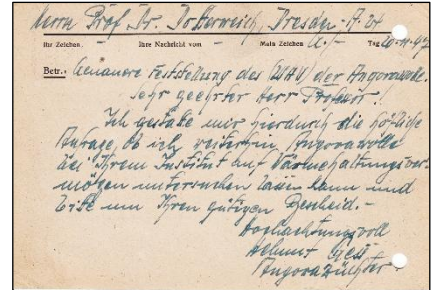 Herrn Prof. Dr. Dr. Osterreich, Dresden-A. 24
Ihr Zeichen. Ihre Nachricht vom Mein Zeichen G./- Tag 20.11.47
Betr.: Genauere Feststellung des (WHV) der Angorawolle.
Sehr geehrter Herr Professor!
Ich gestatte mir hierdurch die höfliche
Anfrage, ob ich weiterhin Angorawolle
bei Ihrem Institut auf Wärmehaltungsver-
mögen untersuchen lassen kann und
bitte um Ihren gütigen Bescheid.-
Hochachtungsvoll
Helmut
Angorazüchter.-